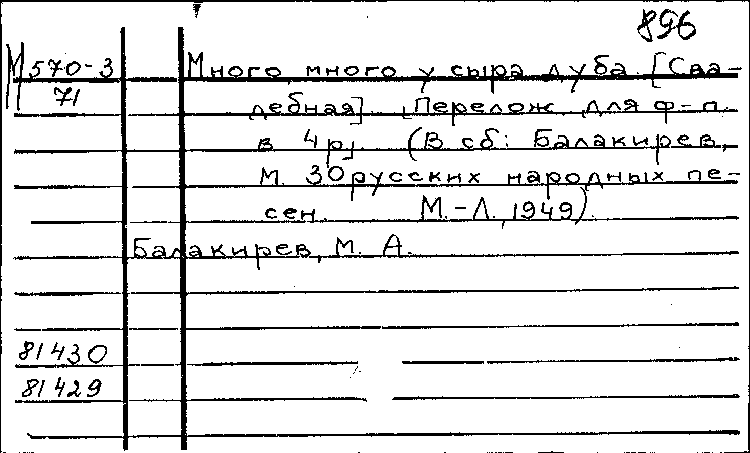 896
М 570-3 Много, много у сыра дуба [Сва-
71 дебная]. [Перелож. для ф-п.
в 4 р]. (В сб: Балакирев,
М. 30 русских народных пе-
сен. М.-Л., 1949).
Балакирев, М. А.
81430
81429